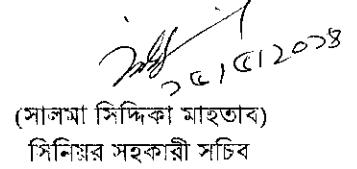 ১৫/৫/২০১৪
(সালমা সিদ্দিকা মাহতাব)
সিনিয়র সহকারী সচিব